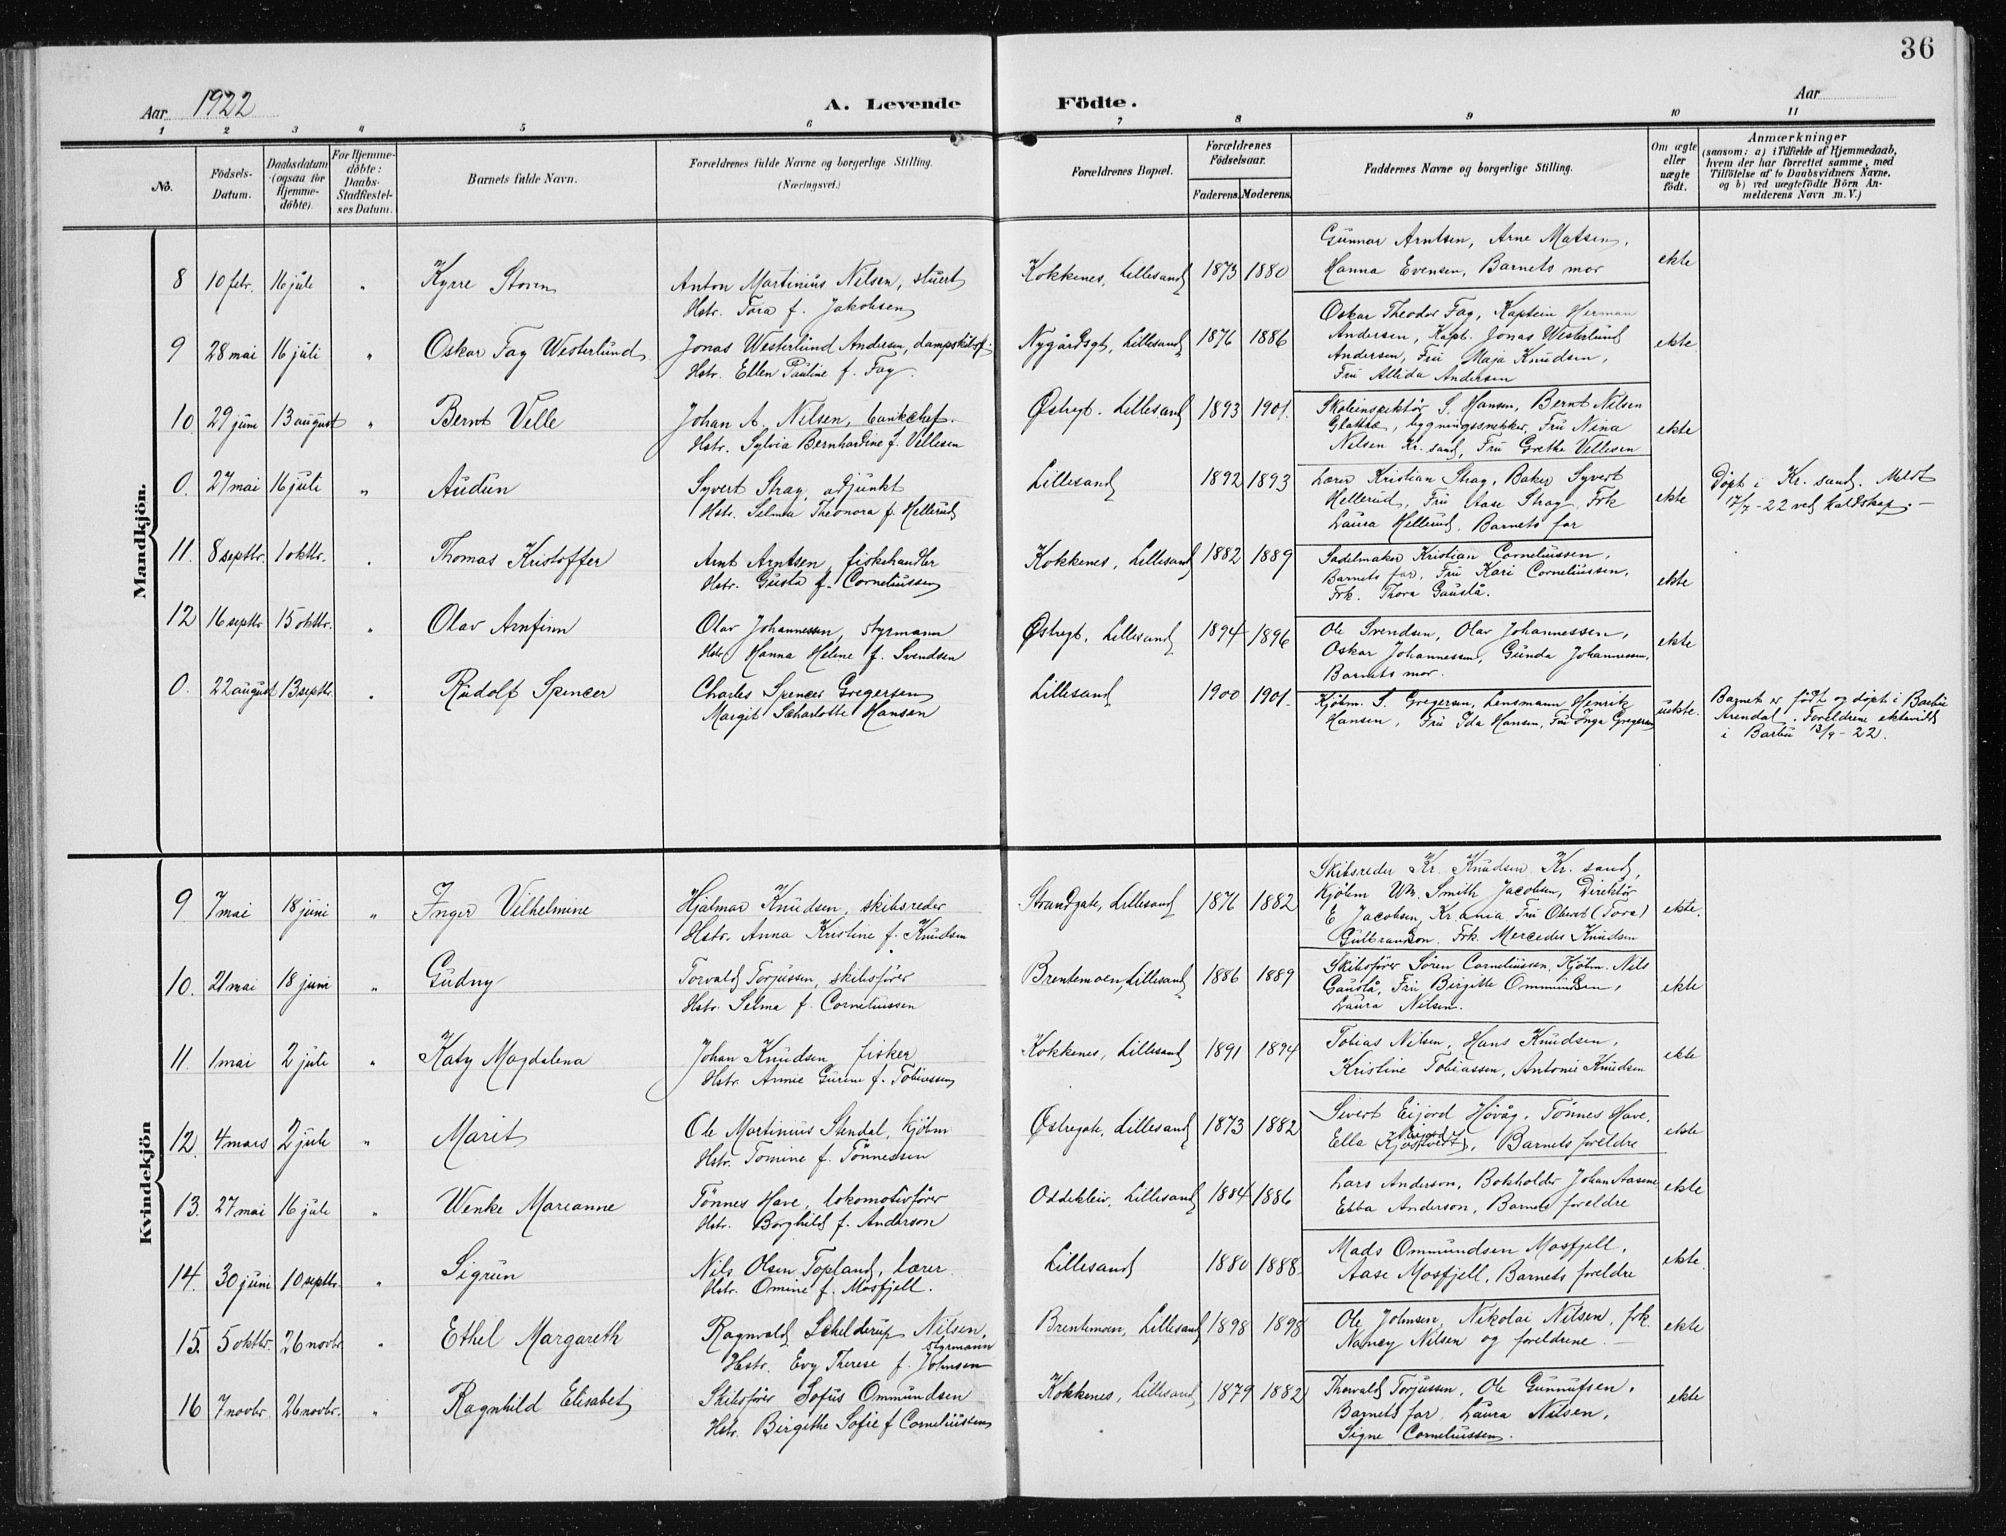 36
Aar 1922
A. Levende
Födte.
Aar
1 2 3 4 5 6 7 8 9 10 11
No.
Födsels-Datum.
Daabsdatum (ogsaa for Hjemme-döbte).
For Hjemme-döbte: Daabs-Stadfæstel-ses Datum.
Barnets fulde Navn.
Forældrenes fulde Navne og borgerlige Stilling.
(Næringsvei.)
Forældrenes Bopæl.
Forældrenes Födselsaar.
Faderens. Moderens.
Faddernes Navne og borgerlige Stilling.
Om ægte eller uægte födt.
Anmærkninger
(saasom: a) i Tilfælde af Hjemmedaab,
hvem der har forrettet samme, med
Tilföielse af to Daabsvidners Navne,
og b) ved uægtefödte Börn An-
melderens Navn m.V.)
Mandkjön.
8 10 febr. 16 juli " Kyrre Storm Anton Martinius Nilsen, stuert
Hstr. Tora f. Jakobsen
Kokkenes, Lillesand 1873 1880
Gunnar Arntsen, Arne Matsen,
Hanna Evensen, Barnets mor
ekte
9 28 mai 16 juli " Oskar Fay Westerlund Jonas Westerlund Andersen, dampskibsf.
Hstr. Ellen Pauline f. Fay
Nygårdsgt, Lillesand 1876 1886
Oskar Theodor Fay, Kaptein Herman
Andersen, Kapt. Jonas Westerlund
Andersen, Fru Maja Knudsen,
Fru Allida Andersen
ekte
10 29 juni 13 august " Bernt Velle Johan A. Nilsen, bankchef.
Hstr. Sylvia Bernhardine f. Vellesen
Østregt. Lillesand 1893 1901.
Skoleinspektør S. Hansen, Bernt Nilsen
bygningssnekker, Fru Nina
Nilsen Kr. sand, Fru Grethe Vellesen
ekte
0. 27 mai 16 juli " Audun Syvert Stray, adjunkt
Hstr. Selma Theonora f. Hellerud
Lillesand 1892 1893
Lærer Kristian Stray, Baker Syvert
Hellerud, Fru Aase Stray, Frk
Laura Hellerud, Barnets far
ekte
Døpt i Kr. sand. Meldt
17/7 - 22 ved kaldskap. -
11. 8 septbr. 1 oktbr. " Thomas Kristoffer Arnt Arntsen, fiskehandler
Hstr. Gusta f. Corneliussen
Kokkenes, Lillesand 1882 1889
Sadelmaker Kristian Corneliussen,
Barnets far, Fru Kari Corneliussen,
Frk. Thora Gauslå.
ekte
12 16 septbr. 15 oktbr. " Olav Arnfinn Olav Johannessen, styrmann
Hstr. Hanna Helene f. Svendsen
Østregt, Lillesand 1894 1896
Ole Svendsen, Olav Johannessen,
Oskar Johannessen, Gunda Johannessen,
Barnets mor.
ekte
0. 22 august 13 septbr. " Rudolf Spencer Charles Spencer Gregersen
Margit Scharlotte Hansen
Lillesand 1900 1901.
Kjøbm. S. Gregersen, Lensmann Henrik
Hansen, Fru Ida Hansen, Fru Inga Gregersen
uekte.
Barnet er født og døpt i Barbu
Arendal. Foreldrene ekteviedt
i Barbu 13/9 - 22.
Kvindekjön
9. 7 mai 18 juni " Inger Vilhelmine Hjalmar Knudsen, skibsreder
Hstr. Anna Kristine f. Knudsen
Strandgate, Lillesand 1876 1882
Skibsreder Kr. Knudsen Kr. sand,
Kjøbm Wm. Smith Jacobsen, Direktør
E Jacobsen, Kr. ania, Fru Oberst (Tora)
Gulbranson. Frk. Mercedes Knudsen
ekte.
10. 21 mai 18 juni " Gudny Torvald Torjussen, skibsfører
Hstr. Selma f. Corneliussen
Brentemoen, Lillesand 1886 1889
Skibsfører Søren Corneliussen, Kjøbm. Nils
Gauslå, Fru Birgitte Ommundsen,
Laura Nilsen.
ekte
11. 1 mai 2 juli " Katy Magdalena Johan Knudsen, fisker
Hstr. Annie Gurine f. Tobiassen
Kokkenes, Lillesand 1891 1894
Tobias Nilsen, Hans Knudsen,
Kristine Tobiassen, Antonie Knudsen
ekte
12. 4 mars 2 juli " Marit Ole Martinius Stendal, kjøbm
Hstr. Tomine f. Tønnessen
Østregate, Lillesand 1873 1882
Sivert Eijord Høvåg, Tønnes Have,
Ella Barnets foreldre
ekte
13. 27 mai 16 juli " Wenke Marianne Tønnes Have, lokomotivfører
Hstr. Borghild f. Anderson
Oddekleiv, Lillesand 1884 1886
Lars Anderson, Bokholder Johan Aasen
Ebba Anderson, Barnets foreldre
ekte
14. 30 juni 10 septbr. " Sigrun Nils Olsen Topland, lærer
Hstr. Omine f. Mosfjell.
Lillesand 1880 1888
Mads Ommundsen Mosfjell,
Aase Mosfjell, Barnets foreldre
ekte
15. 5 oktbr. 26 novbr. " Ethel Margareth Ragnvald Schelderup Nilsen,
styrmann
Hstr. Evy Therese f. Johnsen
Brentemoen, Lillesand 1898 1898
Ole Johnsen, Nikolai Nilsen, frk.
Nancy Nilsen og foreldrene. -
ekte
16 7 novbr. 26 novbr. " Ragnhild Elisabet Skibsfører Sofus Ommundsen
Hstr. Birgithe Sofie f Corneliussen
Kokkenes, Lillesand 1879 1882
Thorvald Torjussen, Ole Gunnufsen,
Barnets far, Laura Nilsen,
Signe Corneliussen.
ekte